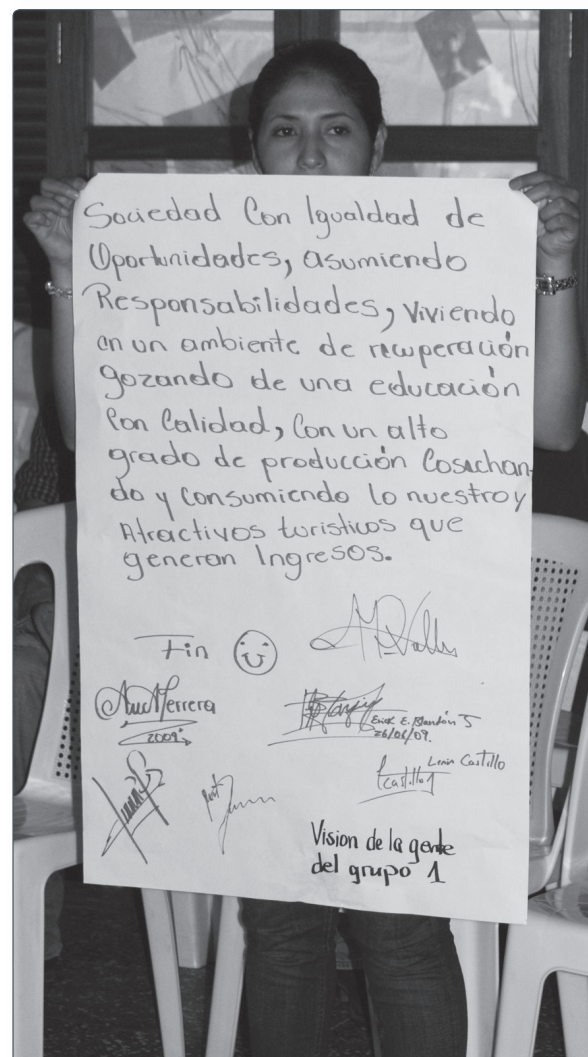 Sociedad Con Igualdad de
Oportunidades, asumiendo
Responsabilidades, viviendo
en un ambiente de recuperación
gozando de una educación
Con Calidad, Con un alto
grado de producción Cosechan-
do y Consumiendo lo nuestro y
Atractivos turisticos que
generan Ingresos.
Fin
2009
Erick E. Blandón J
26/06/09.
Lenin Castillo
Castillo
Vision de la gente
del grupo 1